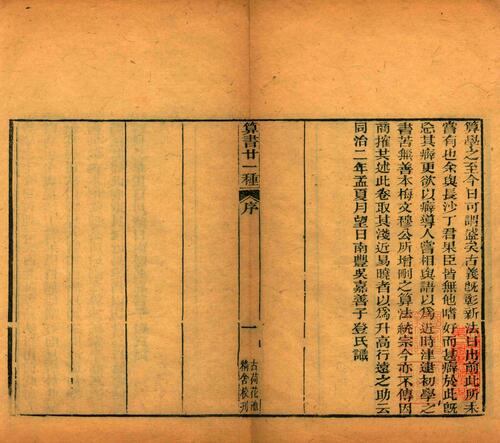 算學之至今日可謂盛矣古義旣彰新法日出前此所未
嘗有也余與長沙丁君果臣皆無他嗜好而甚癖於此旣
忘其癖更欲以癖導人嘗相與語以爲近時津逮初學之
書苦無善本梅文穆公所增刪之算法統宗今亦不傳因
商搉其述此卷取其淺近易曉者以爲升高行遠之助云
同治二年孟夏月望日南豐吳嘉善子登氏識
算書廿一種
序
一
古荷花池
精舍校刊